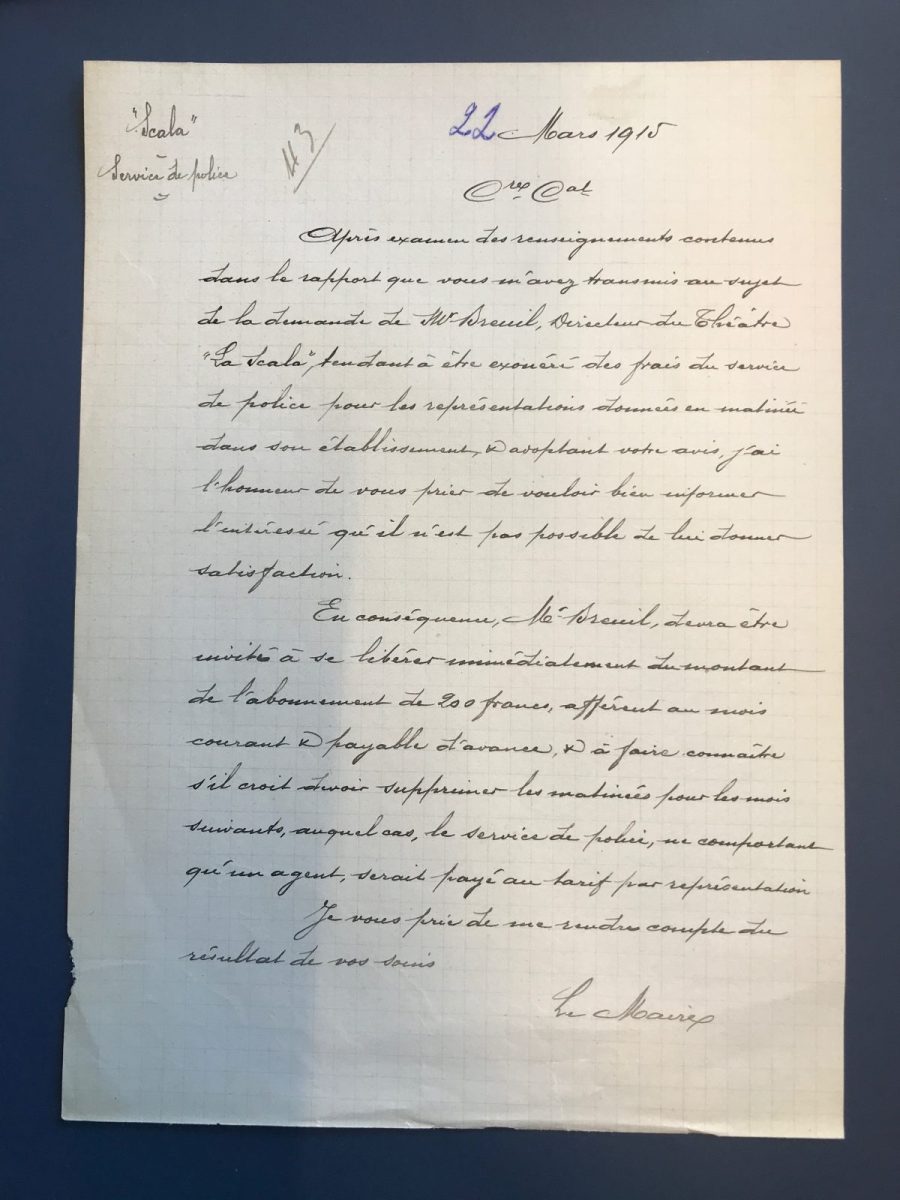 "Scala"
Service de police
43
22 Mars 1915
Cre Cal
Après examen des renseignements contenus
dans le rapport que vous m'avez transmis au sujet
de la demande de Mr Breuil, Directeur du Théâtre
"La Scala", tendant à être exonéré des frais du service
de police pour les représentations données en matinée
dans son établissement, & adoptant votre avis, j'ai
l'honneur de vous prier de vouloir bien informer
l'intéressé qu'il n'est pas possible de lui donner
satisfaction.
En conséquence, Mr Breuil, devra être
invité à se libérer immédiatement du montant
de l'abonnement de 200 francs, afférent au mois
courant & payable d'avance, & à faire connaître
s'il croit devoir supprimer les matinées pour les mois
suivants, auquel cas, le service de police, ne comportant
qu'un agent, serait payé au tarif par représentation
Je vous prie de me rendre compte du
résultat de vos soins
Le Maire